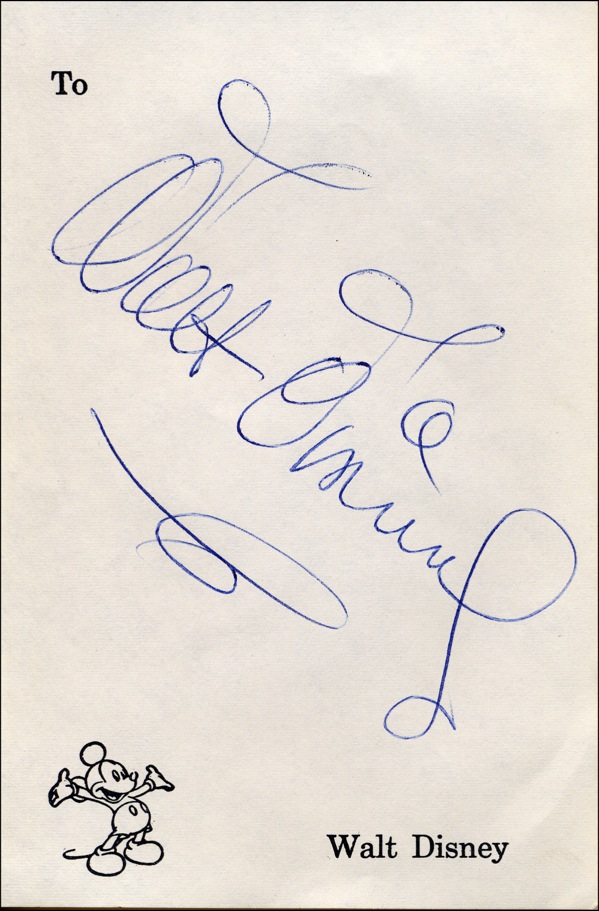 To
Walt Disney
Walt Disney